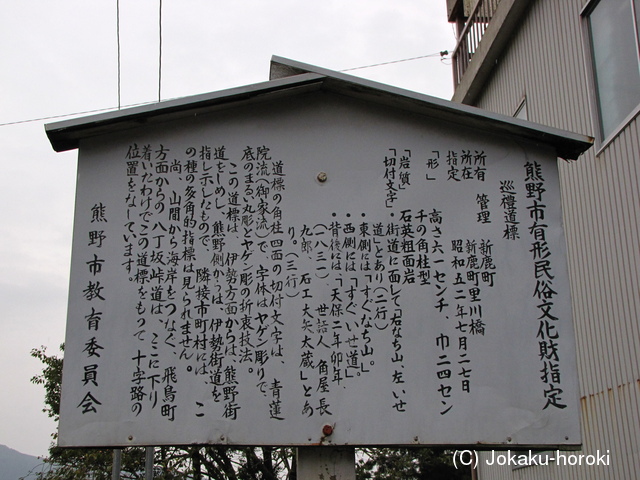 熊野市有形民俗文化財指定
巡禮道標
所有 管理 新鹿町
所在 新鹿町里川橋
指定 昭和五二年七月二七日
「形」 高さ六一センチ、巾二四セン
チの角柱型
「岩質」 石英粗面岩
「切付文字」・街道に面して「右なち山、左いせ
道」とあり(二行)
・東側には「すぐなち山」。
・西側には「すぐいせ道」。
・背後には「天保二年卯年
(一八三一) 世話人 角屋長
九郎、石工 大矢太蔵」とあ
り。(三行)
道標の角柱四面の切付文字は、青蓮
院流(御家流)で、字体はヤゲン彫りで、
底のまるい丸彫とヤゲン彫の折衷技法。
この道標は、伊勢方面からは、熊野街
道をしめし、熊野側からは、伊勢街道を
指し示したもので、隣接市町村には、こ
の種の多角的指標は見られません。
尚、山間から海岸をつなぐ、飛鳥町
方面からの八丁坂峠道は、ここに下り
着いたわけでこの道標をもつて、十字路の
位置をなしています。
熊野市教育委員会
(C) Jokaku-horoki